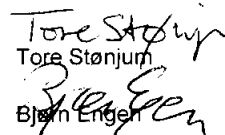 Tore Stønjum
Tore Stønjum
Bjørn Engen
Bjørn Engen